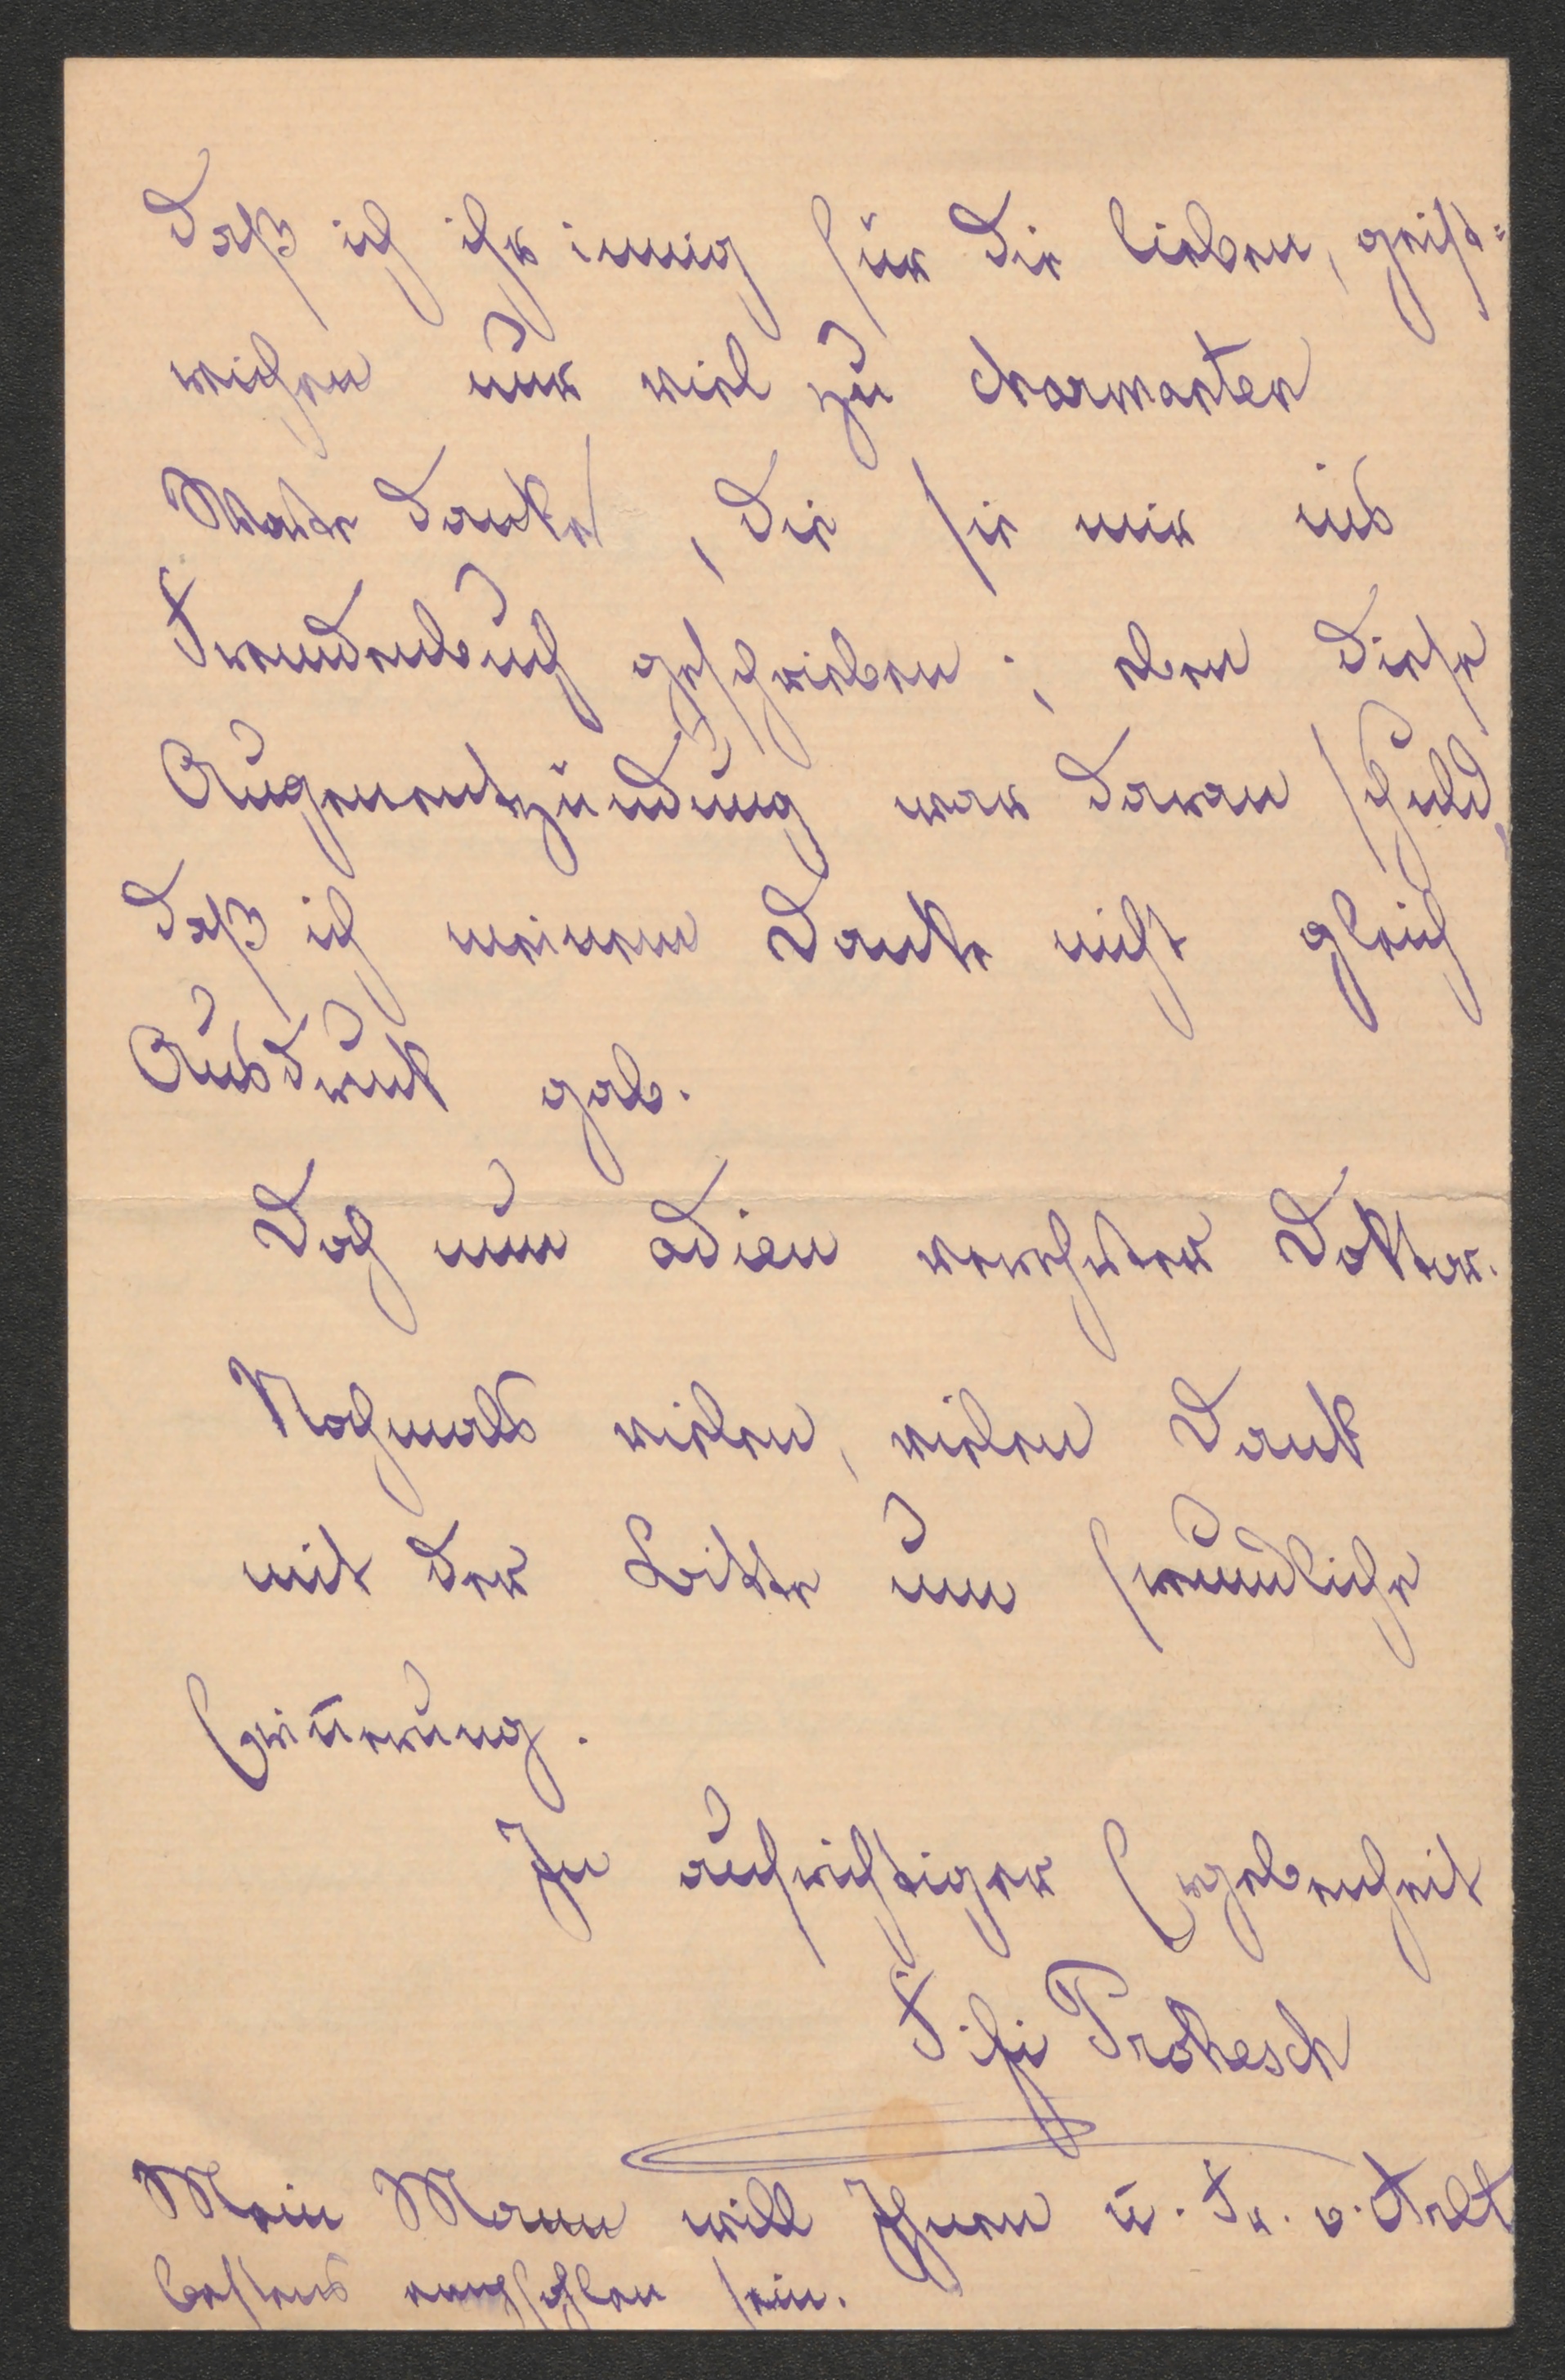 daß ich ihr innig für die lieben, geist=
reichen nur viel zu charmanten
Worte danke, die sie mir ins
Fremdenbuch geschrieben; eben diese
Augenentzündung war daran schuld,
daß ich meinem Danke nicht gleich
Ausdruck gab.
Doch nun adieu verehrter Doktor.
Nochmals vielen, vielen Dank
mit der Bitte um freundliche
In aufrichtiger Ergebenheit
Fifi Prokesch
Mein Mann will Ihnen u. Fr. v.
bestens empfohlen sein.